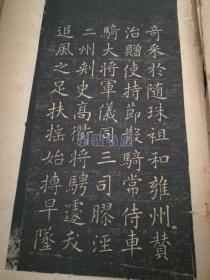 奇采於随珠祖和雍州贊
治贈使持節散騎常侍車
騎大將軍儀同三司膠涇
二州刾史高衢將騁遽夭
追風之足扶搖始摶早墜